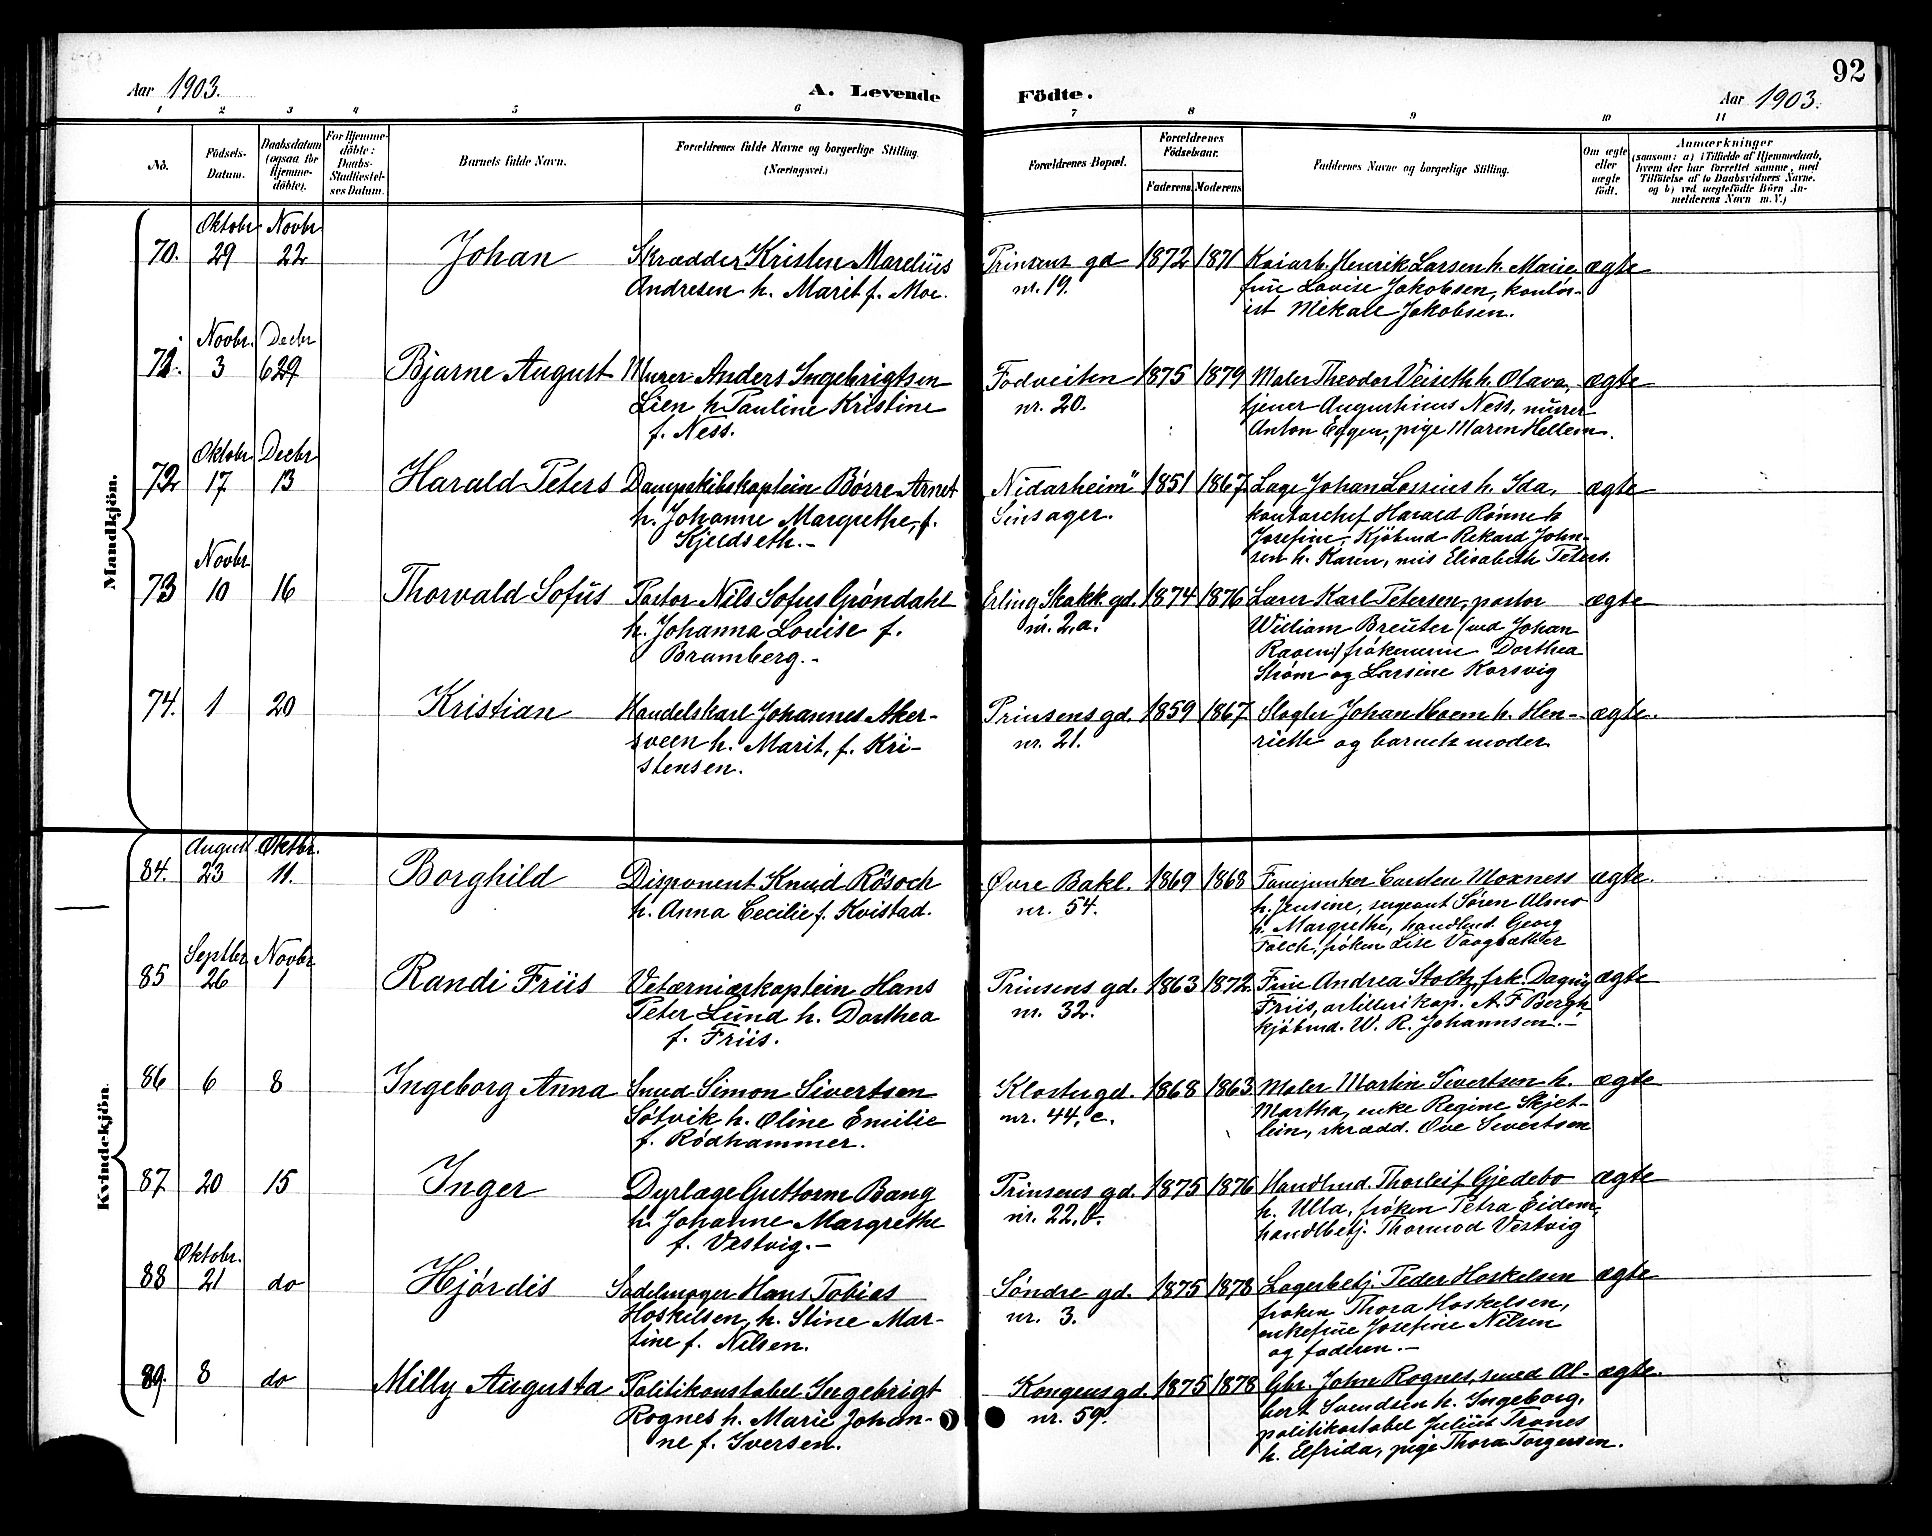 92
Aar 1903.
A. Levende
Födte.
Aar 1903.
1 2 3 4 5 6 7 8 9 10 11
No.
Födsels-Datum.
Daabsdatum (ogsaa for Hjemmedöbte).
For Hjemmedöbte: Daabs-Stadfæstelses Datum.
Barnets fulde Navn.
Forældrenes fulde Navne og borgerlige Stilling. (Næringsvei.)
Forældrenes Bopæl.
Forældrenes Födselsaar.
Faderens. Moderens.
Faddernes Navne og borgerlige Stilling.
Om ægte eller uægte födt.
Anmærkninger
(saasom: a) i Tilfælde af Hjemmedaab,
hvem der har forrettet samme, med
Tilföielse af to Daabsvidners Navne,
og b) ved uægtefödte Börn An-
melderens Navn m. V.)
Mandkjön.
Oktobr. Novbr
70. 29 22 Johan Skrædder Kristen Marelius Prinsens gd 1872 1871 Kaiarb. Henrik Larsen h. Marie ægte
Andresen h. Marit f. Moe. nr. 19. frue Lovise Jakobsen, kontor-
ist Mikael Jakobsen.
Novbr. Decbr
71. 3 6 29 Bjarne August Murer Anders Ingebrigtsen Fodveiten 1875 1879 Maler Theodor Veiseth h. Olava, ægte
Lien h. Pauline Kristine nr. 20. tjener Augustinus Ness, murer
f. Ness. Anton Eggen, pige Maren Hellem.
Oktobr Decbr
72 17 13 Harald Peters Dampskibskaptein Børre Arnet "Nidarheim" 1851 1867 Læge Johan Lossius h. Ida, ægte
h. Johanne Margrethe, f. Sinsager. kontorchef Harald Rønne h
Kjeldseth.- Josefine, Kjöbmd Rikard John-
sen h. Karen, mis Elisabeth Peters.
Novbr
73 10 16 Thorvald Sofus Pastor Nils Sofus Grøndahl Erling Skakk. gd. 1874 1876 Lærer Karl Petersen, pastor ægte
h. Johanna Louise f. nr. 2,a. William Breuter (ved Johan
Bramberg.- Raven) frøknerne Dorthea
Strøm og Larsine Korsvig
74. 1 20 Kristian Handelskarl Johannes Aker- Prinsens gd. 1859 1867 Slagter Johan Hoem h. Hen- ægte.
sveen h. Marit, f. Kri- nr. 21. riette og barnets moder.
stensen.
Kvindekjön.
August Oktbr.
84. 23 11. Borghild Disponent Knud Rösoch Øvre Bakl. 1869 1868 Fanejunker Carsten Moxness ægte.
h. Anna Cecilie f. Kvistad. nr. 54. h. Jensine, sergeant Søren Almo
h. Margrethe, handlend. Georg
Falch, frøken Lise
Septbr Novbr
85 26 1 Randi Friis Veterinærkaptein Hans Prinsens gd. 1863 1872 Frue Andrea Stoltz, frk. Dagny ægte
Peter Lund h. Dorthea nr. 32. Friis, artillerikap. A. F. Bergh
f. Friis. kjöbmd. W. R. Johannsen.-
86 6 8 Ingeborg Anna Smed Simon Sivertsen Klostergd. 1868 1863 Maler Martin Sivertsen h. ægte
Solvik h. Oline Emilie nr. 44, c. Martha, enke Regine Skjet-
f. Rödhammer. lein, skrædd. Ove Sivertsen
87 20 15 Inger Dyrlæge Guttorm Bang Prinsens gd. 1875 1876 Handlend. Thorleif Gjedebo ægte
h. Johanne Margrethe nr. 22,b. h. Ulla, frøken Petra Eidem,
f. Vestvig.- handlbetj. Thormod Vestvig
Oktobr.
88 21 do Hjördis Sadelmager Hans Tobias Søndre gd. 1875 1878 Lagerbetj. Peder Hoskelsen ægte
Hoskelsen, h. Stine Mar- nr. 3. frøken Thora Hoskelsen,
tine f. Nilsen. enkefrue Josefine Nilsen
og faderen.-
89. 8 do Milly Augusta Politikonstabel Ingebrigt Kongens gd. 1875 1878 Gbr. John Rognes, smed Al- ægte.
Rognes h. Marie Johan- nr. 59. bert Svendsen h. Ingeborg,
ne f. Iversen. politikostabel Julius Trones
h. Elfrida, pige Thora Torgersen.